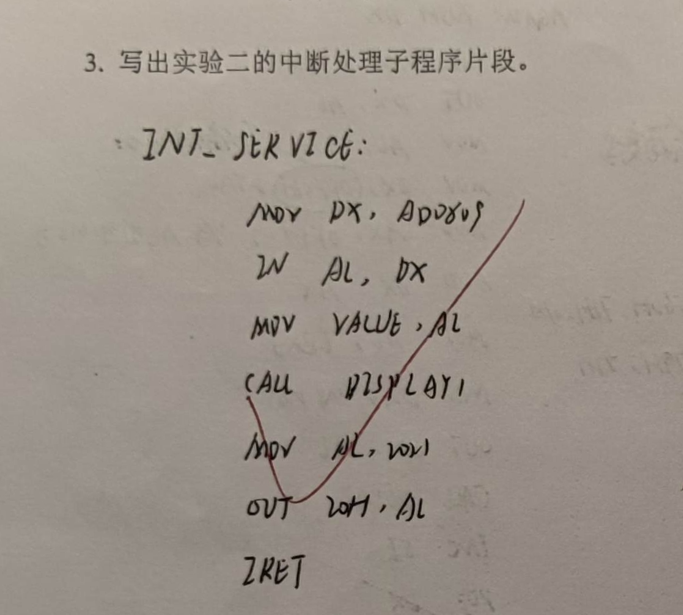 3. 写出实验二的中断处理子程序片段。
INT_SERVICE:
MOV DX, AD0809
IN AL, DX
MOV VALUE, AL
CALL DISPLAY1
MOV AL, 20H
OUT 20H, AL
IRET